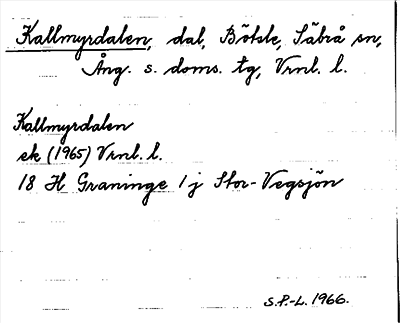 Kallmyrdalen, dal, Bölsle, Säbrå sn,
Ång. s. doms. tg, Vrnl. l.
Kallmyrdalen
ek (1965) Vrnl. l.
18 H Graninge 1 j Stor-Vegsjön
S.P.-L. 1966.